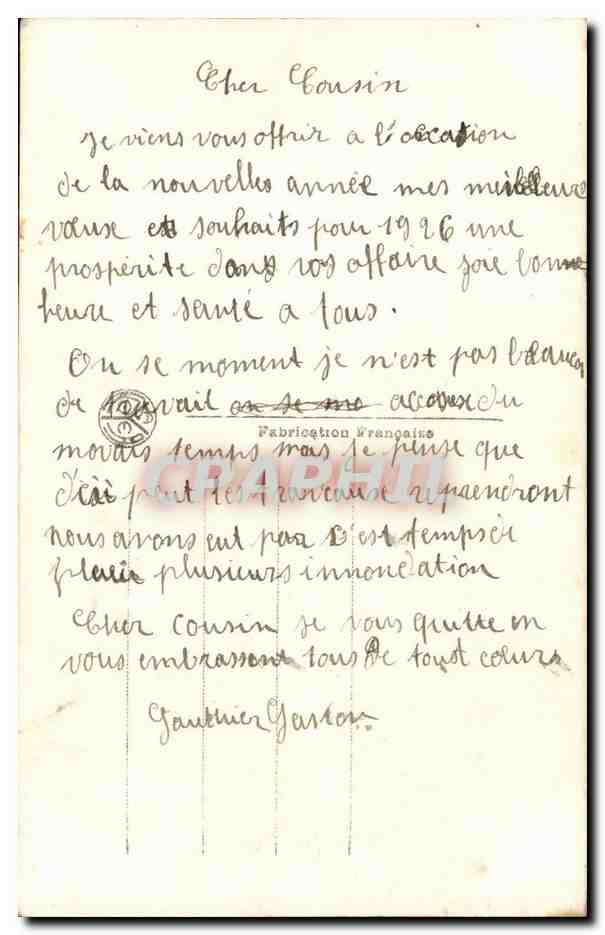 Cher Cousin
Je viens vous offrir a l'occation
de la nouvelles année mes meilleure
vouse et souhaits pour 1926 une
prospérite dans vos affaire joie bonne
heure et santé a tous.
On se moment je n'est pas beaucou
de travail on se mo acause du
Fabrication Française
movais temps mais je pense que
d'ici peut les travause reprendront
CPAPHIL
nous avons eut par s'est temps de
pluie plusieurs innondation
Cher Cousin je vous quitte en
vous embrassent tous de tout cœur
Gauthier Gaston